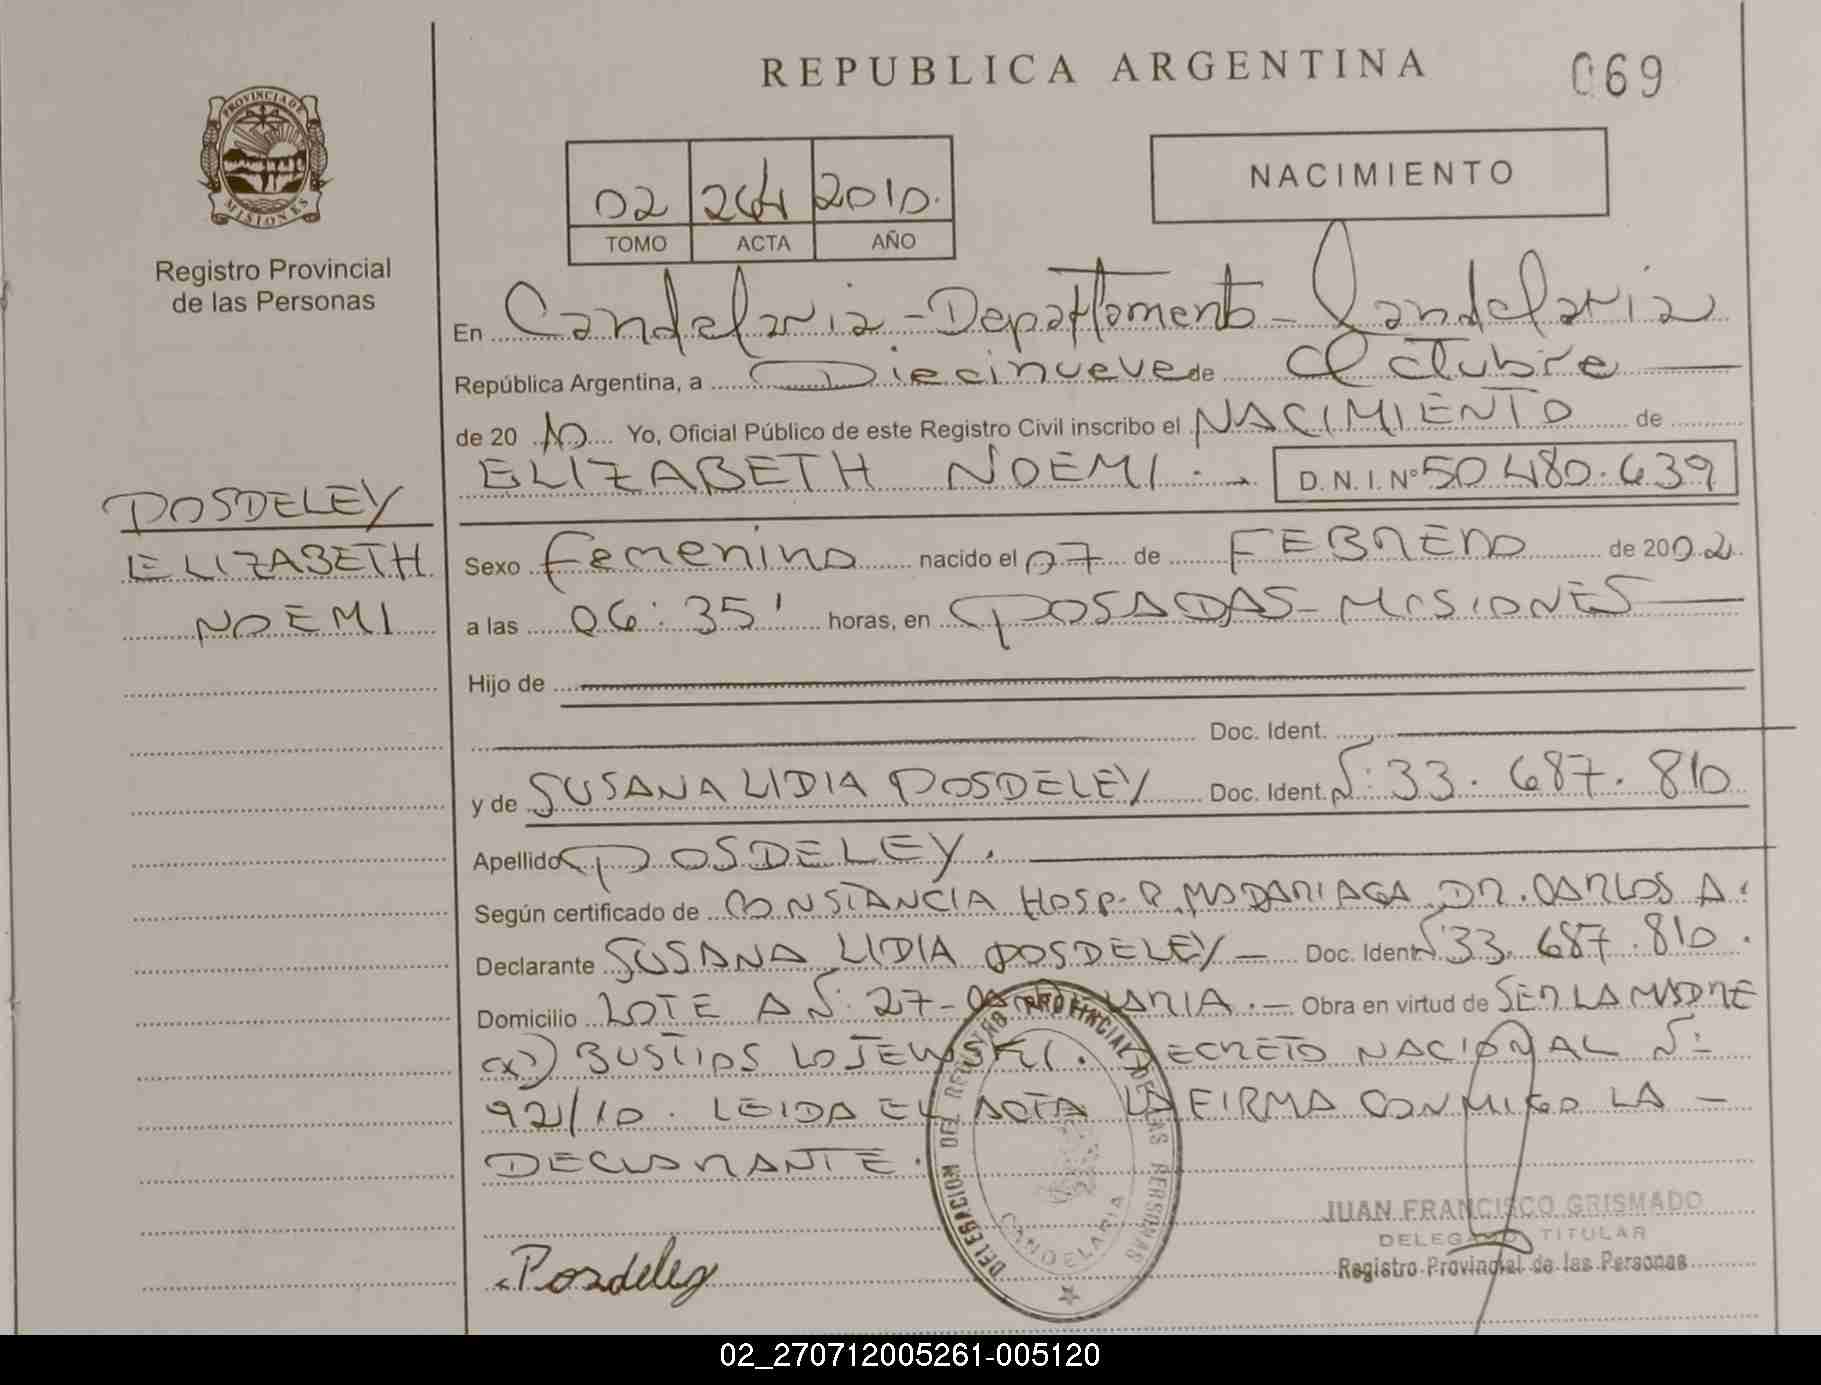 REPUBLICA ARGENTINA
069
PROVINCIA DE MISIONES
Registro Provincial
de las Personas
02 264 2010.
TOMO ACTA AÑO
NACIMIENTO
En Candelaria - Departamento - Candelaria
República Argentina, a Diecinueve de Octubre
de 20 10 Yo, Oficial Público de este Registro Civil inscribo el NACIMIENTO de
ELIZABETH NOEMI. D.N.I. Nº 50.480.639
POSDELEY
ELIZABETH
NOEMI
Sexo Femenino nacido el 07 de FEBRERO de 2002
a las 06:35' horas, en POSADAS - MISIONES
Hijo de
Doc. Ident.
y de SUSANA LIDIA POSDELEY Doc. Ident. Nº: 33.687.810
Apellido POSDELEY.
Según certificado de CONSTANCIA HOSP. R. MADARIAGA DR. CARLOS A.
Declarante SUSANA LIDIA POSDELEY - Doc. Ident Nº 33.687.810.
Domicilio LOTE A Nº: 27 - CANDELARIA. - Obra en virtud de SER LA MADRE
DECRETO NACIONAL Nº
92/10. LEIDA EL ACTA LA FIRMA CONMIGO LA -
DECLARANTE.
DELEGACION DEL REGISTRO PROVINCIAL DE LAS PERSONAS
CANDELARIA
JUAN FRANCISCO GRISMADO
DELEGADO TITULAR
Registro Provincial de las Personas
Posdeley
02_270712005261-005120